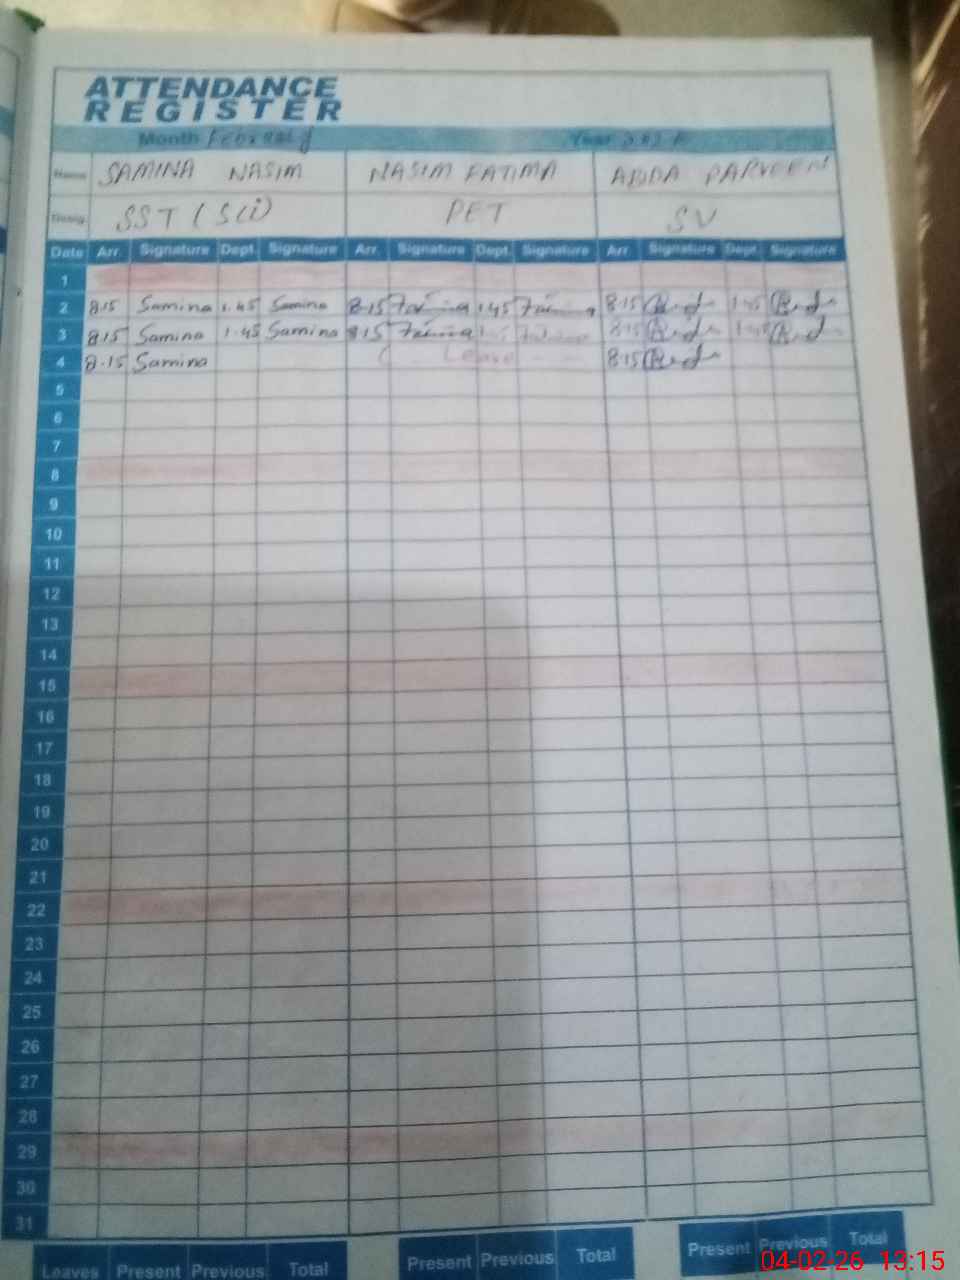 ATTENDANCE
REGISTER
Month February Year
Name SAMINA NASIM NASIM FATIMA PARVEEN
Desig. SST (Sci) PET SV
Date Arr. Signature Dept. Signature Arr. Signature Dept. Signature Arr. Signature Dept. Signature
1
2 8.15 Samina 1.45 Samina 8.15 1.45 8.15 1.45
3 8.15 Samina 1.45 Samina 8.15 8.15 1.45
4 8.15 Samina Leave 8.15
5
6
7
8
9
10
11
12
13
14
15
16
17
18
19
20
21
22
23
24
25
26
27
28
29
30
31
Leaves Present Previous Total Present Previous Total Present Previous Total
04-02-26 13:15